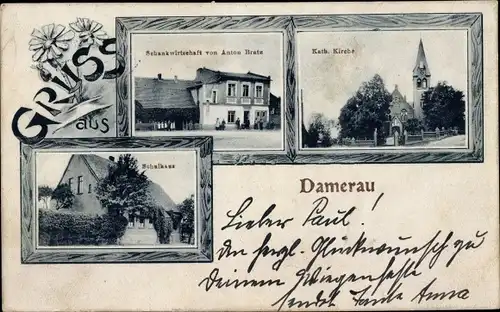 GRUSS
aus
Schankwirtschaft von Anton Bratz
Kath. Kirche
Schulhaus
Damerau
Lieber Paul!
Den herzl. Glückwunsch zu
Deinem Wiegenfeste
sendet Tante Anna